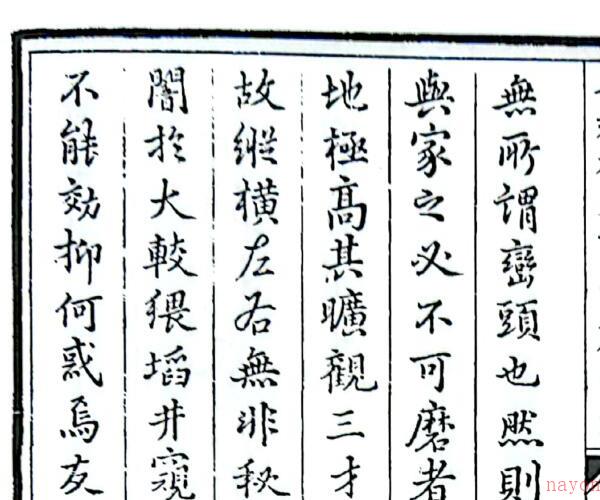 無所謂巒頭也然則
輿家之必不可磨者
地極高其曠觀三才
故縱横左右無非秘
闇於大較猥埳井窺
不能効抑何惑焉友
nayou